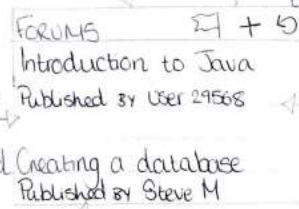 FORUMS +
Introduction to Java
Published By User 29568
Creating a database
Published By Steve M